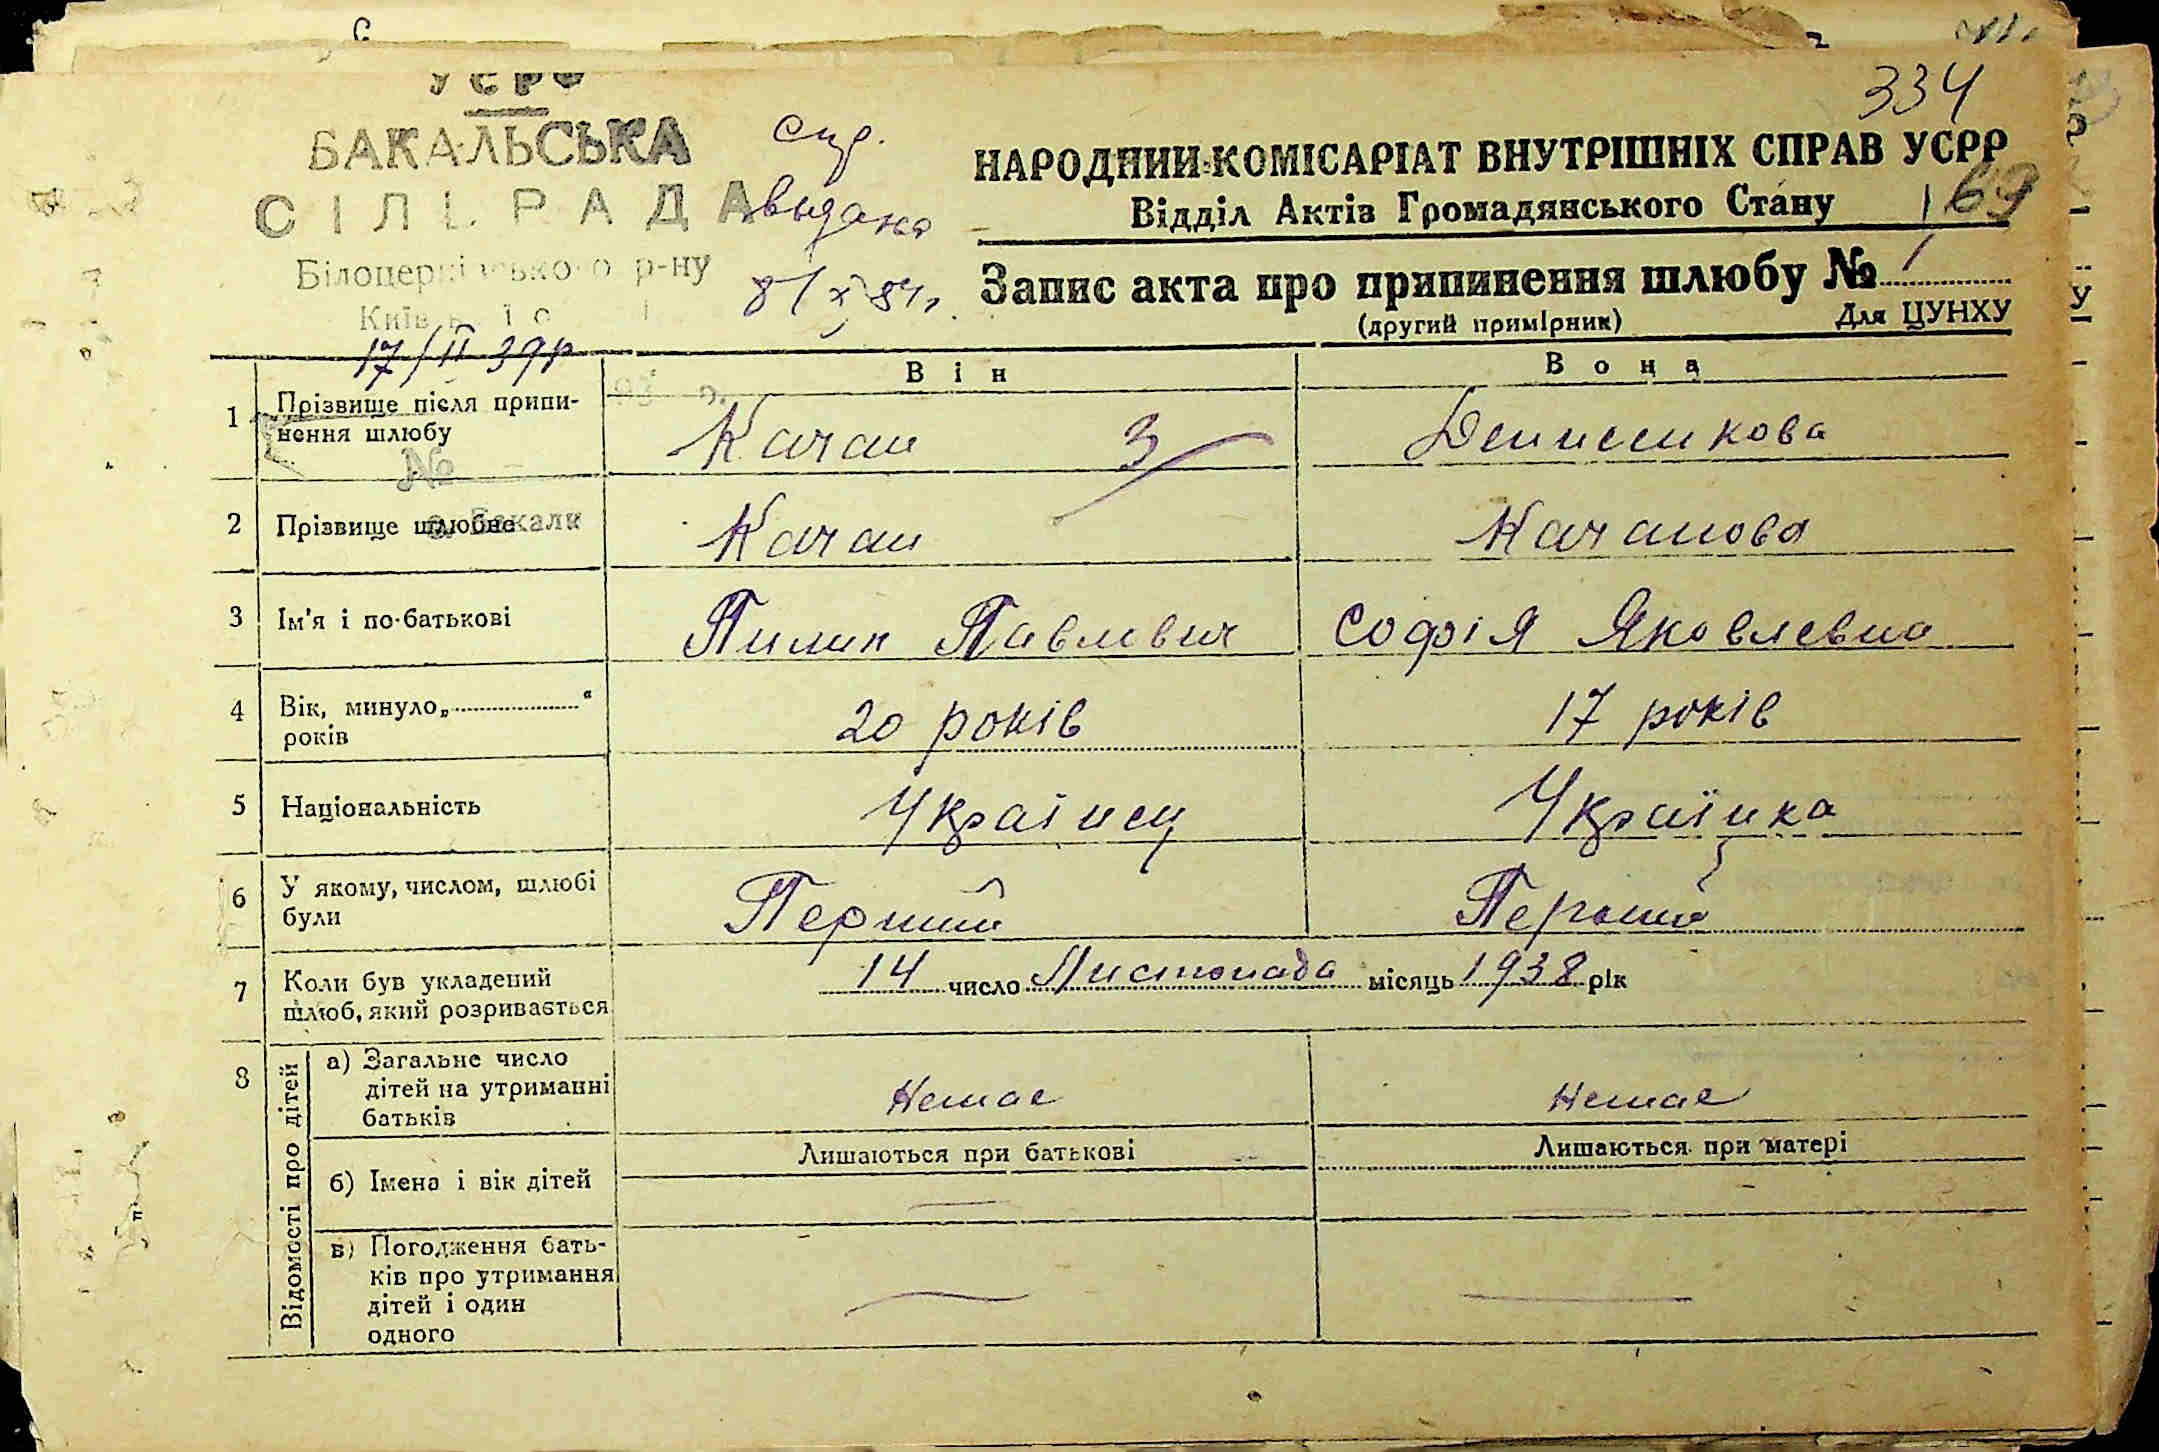 УСРР
334
БАКАЛЬСЬКА
СІЛЬРАДА
Білоцерківського р-ну
17/II 39р
№
с. Бакали
спр.
выдана
8/X 84г.
НАРОДНИЙ КОМІСАРІАТ ВНУТРІШНІХ СПРАВ УСРР
Відділ Актів Громадянського Стану
169
Запис акта про припинення шлюбу № 1
(другий примірник)
Для ЦУНХУ
Він
Вона
1 Прізвище після припи-
нення шлюбу
Качан
3
Денисенкова
2 Прізвище шлюбне
Качан
Качанова
3 Ім'я і по-батькові
Пилип Павлович
Софія Яковлевна
4 Вік, минуло „ “
років
20 років
17 років
5 Національність
Українец
Українка
6 У якому, числом, шлюбі
були
Перший
Перший
7 Коли був укладений
шлюб, який розривається
14 число Листопада місяць 1938 рік
8 Відомості про дітей
а) Загальне число
дітей на утриманні
батьків
Немає
Немає
б) Імена і вік дітей
Лишаються при батькові
Лишаються при матері
в) Погодження бать-
ків про утримання
дітей і один
одного